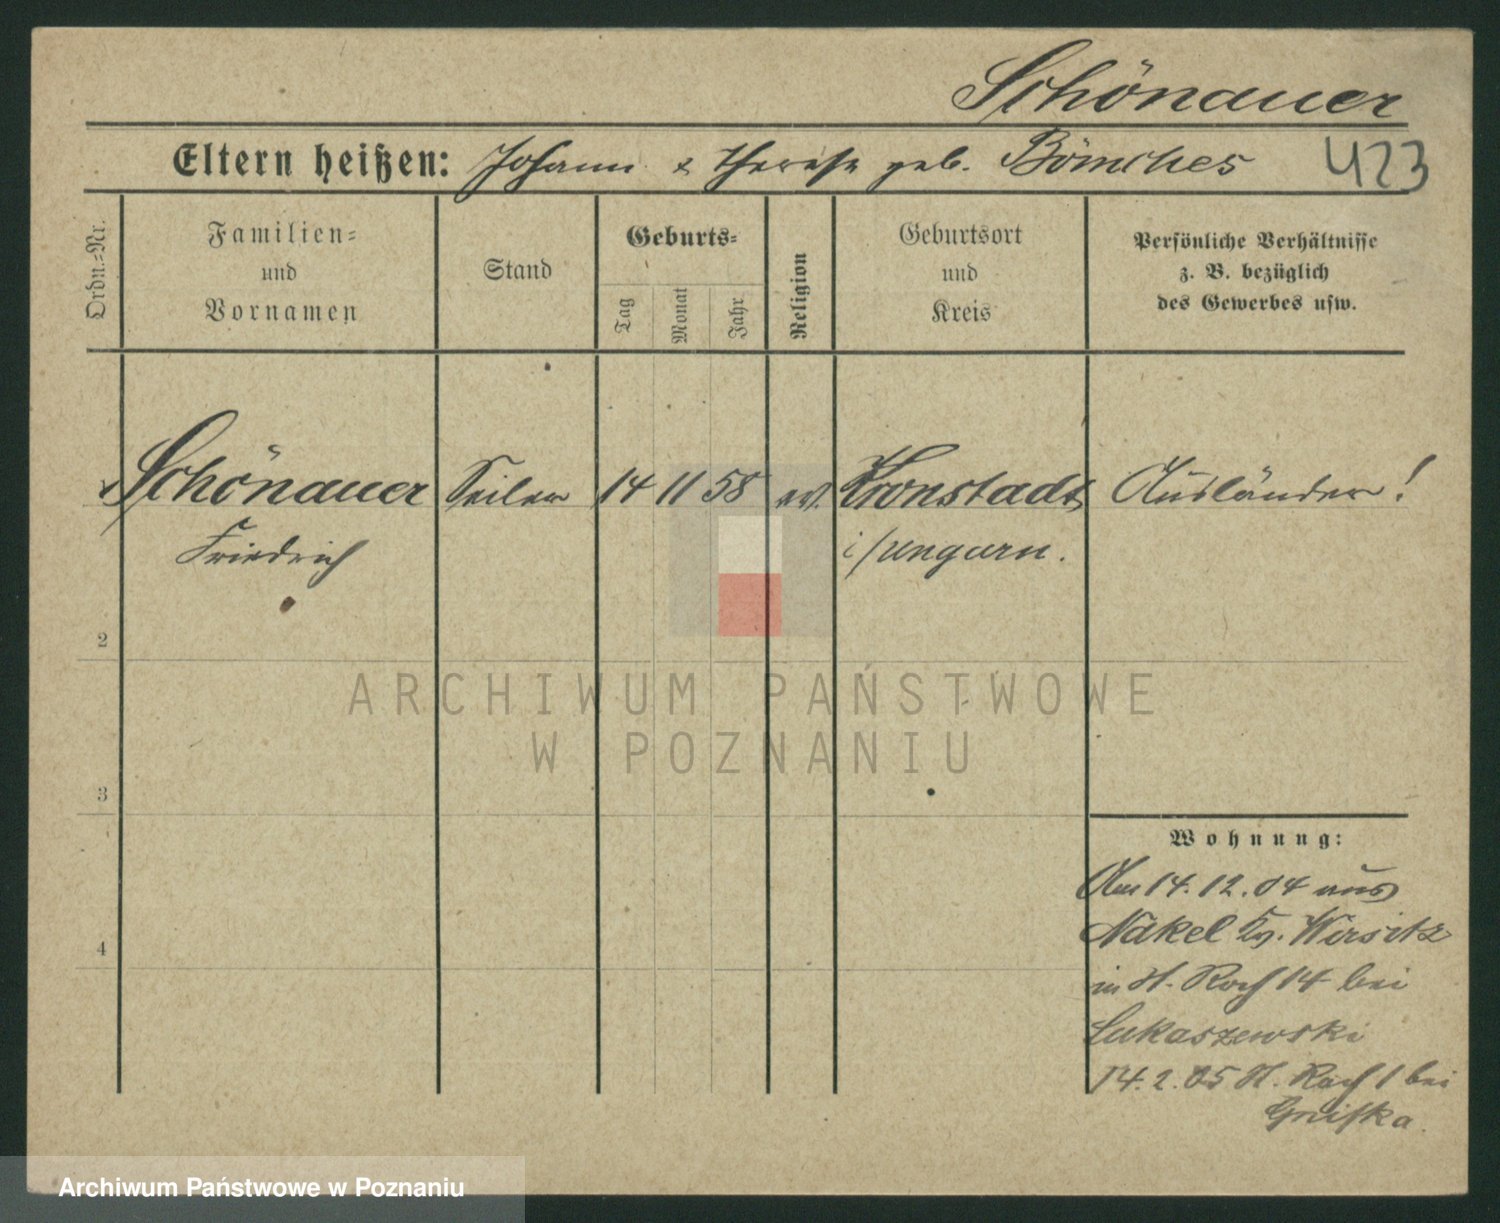 Schönauer
Eltern heißen: Johann & Therese geb. Bömches 423
Ordn.=Nr.
Familien=
und
Vornamen
Stand
Geburts=
Tag
Monat
Jahr
Religion
Geburtsort
und
Kreis
Persönliche Verhältnisse
z. B. bezüglich
des Gewerbes usw.
Schönauer Seiler 14 11 58 ev. Kronstadt Ausländer!
Friedrich i/Ungarn.
2
3
4
ARCHIWUM PAŃSTWOWE
W POZNANIU
Wohnung:
Am 14.12.04 aus
Nakel Kr. Wirsitz
in St. Roch 14 bei
Lukaszewski
14.2.05 St. Roch 1 bei
Archiwum Państwowe w Poznaniu